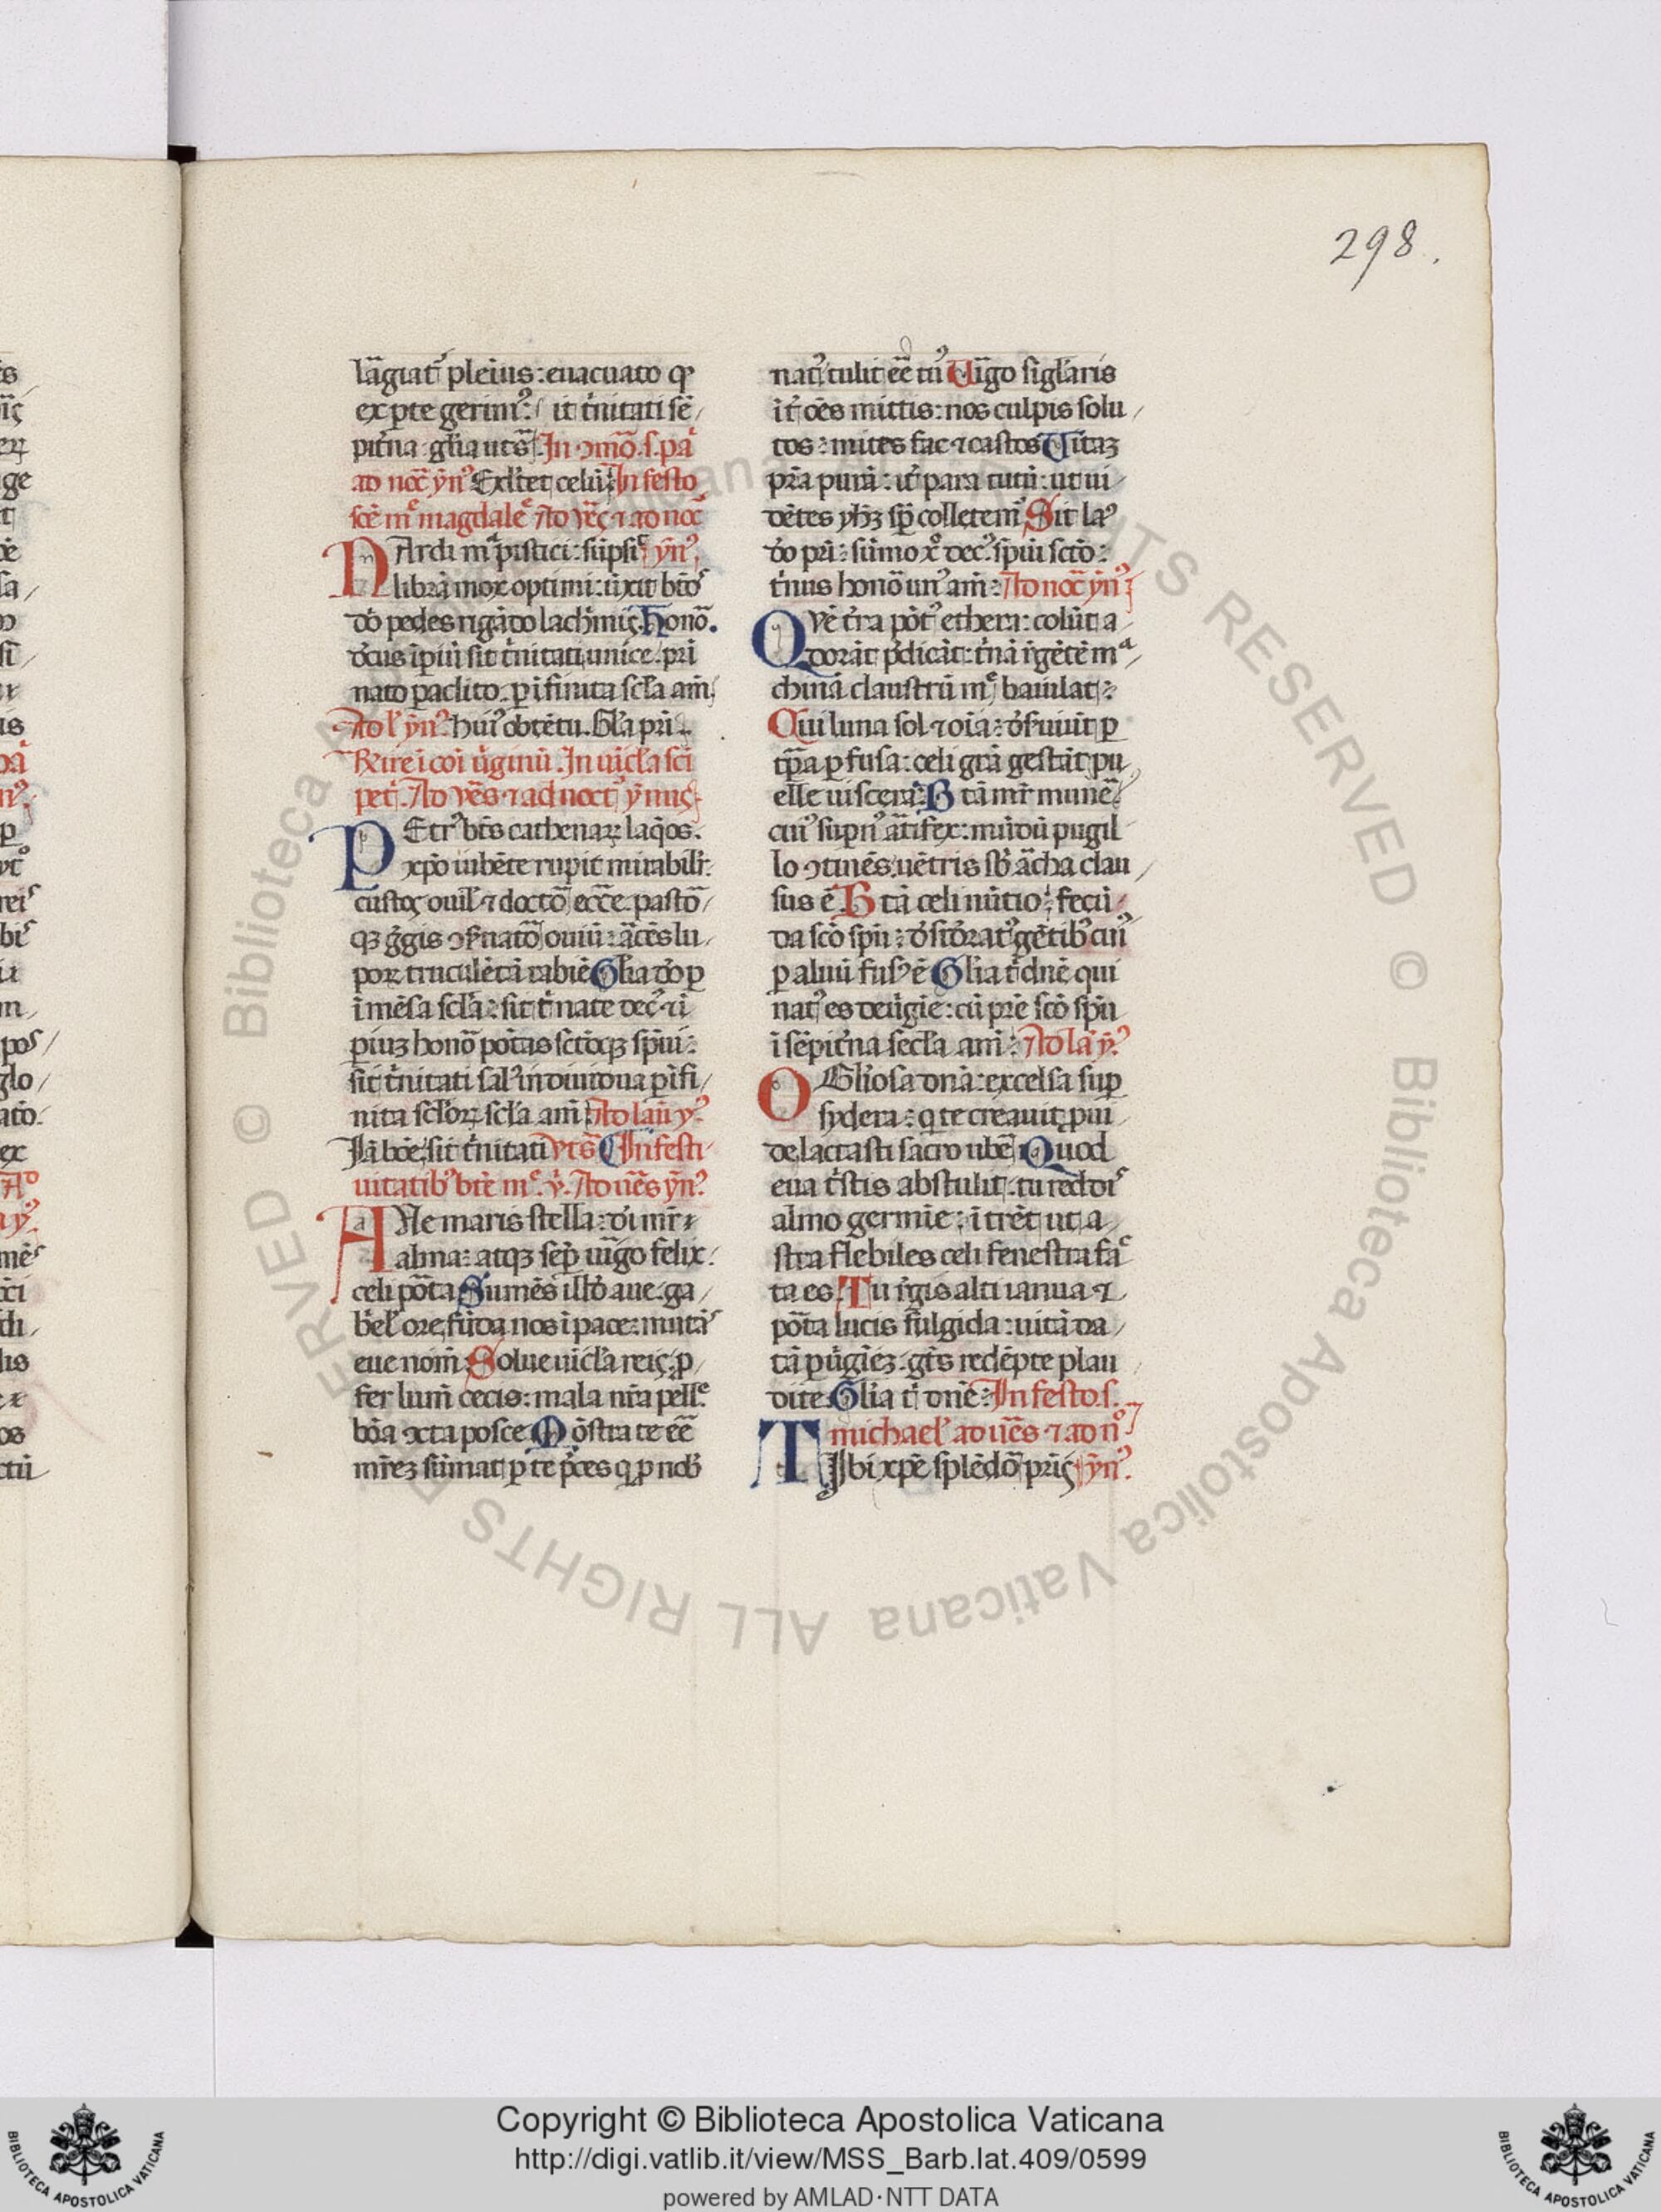 298.
lãgiat᷑ pleíus: euacuato qͦ
ex pte gerim᷒. ut t̾nitati sē
pit̾na gl̃ia uts̃. In ↄmo᷑. s. pa᷑
ad noc̃ yn᷒ Exl̾tet celũ. In festo
sc̃e m͛ magdale͛ Ad vẽs ⁊ ad noc̃
NArdi m͛ pistici: sũpsit yn᷒.
librã mox optimi: ũxit bt̃os
dõ pedes rigãdo lach̾mis. Honõ.
dec᷒ ipiũ sit t̾nitati unice. pr̃i
nato paclito. p ĩfinita scl̃a am̃.
Ad l᷑ yn᷒. hui᷒ obtẽtu. Gl̃a pr̃i.
Reire ĩ coi ũginũ. In uĩcl̃a sc̃i
pet̾. Ad vẽs ⁊ ad noct᷑ ymnꝰ
PEtr᷒ bt̃s cathenaꝝ laq̃os.
xp̃o iubẽte rupit mirabilr̃.
custos ouil̾ ⁊ docto᷑ ecc̃e. pasto᷑
qꝫ g̾gis ↄẜuato᷑ ouiũ: ãcẽs lu
poꝝ truculẽtã rabiẽ Gl̃ia dõ p
ĩmẽsa scl̃a: sit t̾ nate dec᷒ ⁊ ĩ
piuꝫ hono᷑ põtas sc̃toqꝫ sp̃iui:
sit t̾nitati sal᷒ indiuidua p ĩfi
nita scl̃oꝝ scl̃a am̃. Ad lau᷑ y᷒.
Iã bõe, sit t̾nitati vts̃ In festi
uitatib᷒ bt̃e m͛. v̾. Ad uẽs yn᷒.
AUe maris stella: dĩ mr̃
alma: atqꝫ semp̱ uĩgo felix:
celi põta Sumẽs illd̃ aue. ga
b̾el̾ ore, fũda nos ĩ pace: mutãs
eue nom̃. Solue uĩcl̃a reis: p
fer lum̃ cecis: mala nr̃a pelle
bõa ↄcta posce Mõstra te eẽ
mr̃eꝫ sũmat p te p̾ces q p nob̾
nat᷒ tulit eẽ tu᷒ Uĩgo sigl̃aris
ĩt̾ oẽs mittis: nos culpis solu
tos: mites fac ⁊ castos Uitaꝫ
pr̃a purã: it̾ para tutũ: ut ui
dẽtes yh̃ꝫ sp̱ colletem᷒ Sit la᷒
dõ pr̃i: sũmo x͛ dec᷒. sp̃iui sc̃tõ:
t̾nus hono᷑ un᷒ am̃: Ad noc̃ yn᷒
QVẽ t̾ra põt᷒ ethera: colũt a
dorãt p̾dicãt: t̾nã r̾gẽtẽ mª
chinã claustrũ m͛ baiulat:
Qui luna sol ⁊ oĩa: des̾uiũt p
tp̃a p fusa: celi grã gestãt pu
elle uiscera. B tã mr̃ mune᷑
cui᷒ sup̾n᷒ ãtifex: mũdũ pugil
lo ↄtinẽs. uẽtris sb̾ ãcha clau
sus ẽ B tã celi nũtio: fecũ
da sc̃o sp̃u: desid̾at᷒ gẽtib᷒ cui᷒
p aluũ fus᷒ ẽ Gl̃ia t̾ dñe qui
nat᷒ es deũgĩe: cũ pr̃e sc̃o sp̃u
ĩ sẽpit̾na secl̃a am̃: Ad la᷑ y᷒.
O Gl̃iosa dñã: excelsa sup̱
sydera: q te creauit, pui
de, lactasti sacro ube᷑ Quod
eua t̾stis abstulit. tu reddis
almo germĩe: ĩ trẽt ut a
stra flebiles celi fenestra fac
ta es. Tu r̾gis alti ianua ⁊
põta lucis fulgida: uitã da
tã p ũgĩeꝫ. gẽts redẽpte plau
dite Gl̃ia t̾ dñe: In festo s.
michael᷑ ad uẽs ⁊ ad n͛
TIbi xp̃e splẽdo᷑ pr̃is, yn᷒.
Copyright © Biblioteca Apostolica Vaticana
http://digi.vatlib.it/view/MSS_Barb.lat.409/0599
powered by AMLAD·NTT DATA
BIBLIOTECA APOSTOLICA VATICANA
BIBLIOTECA APOSTOLICA VATICANA
© Biblioteca Apostolica Vaticana ALL RIGHTS RESERVED © Biblioteca Apostolica Vaticana ALL RIGHTS RESERVED